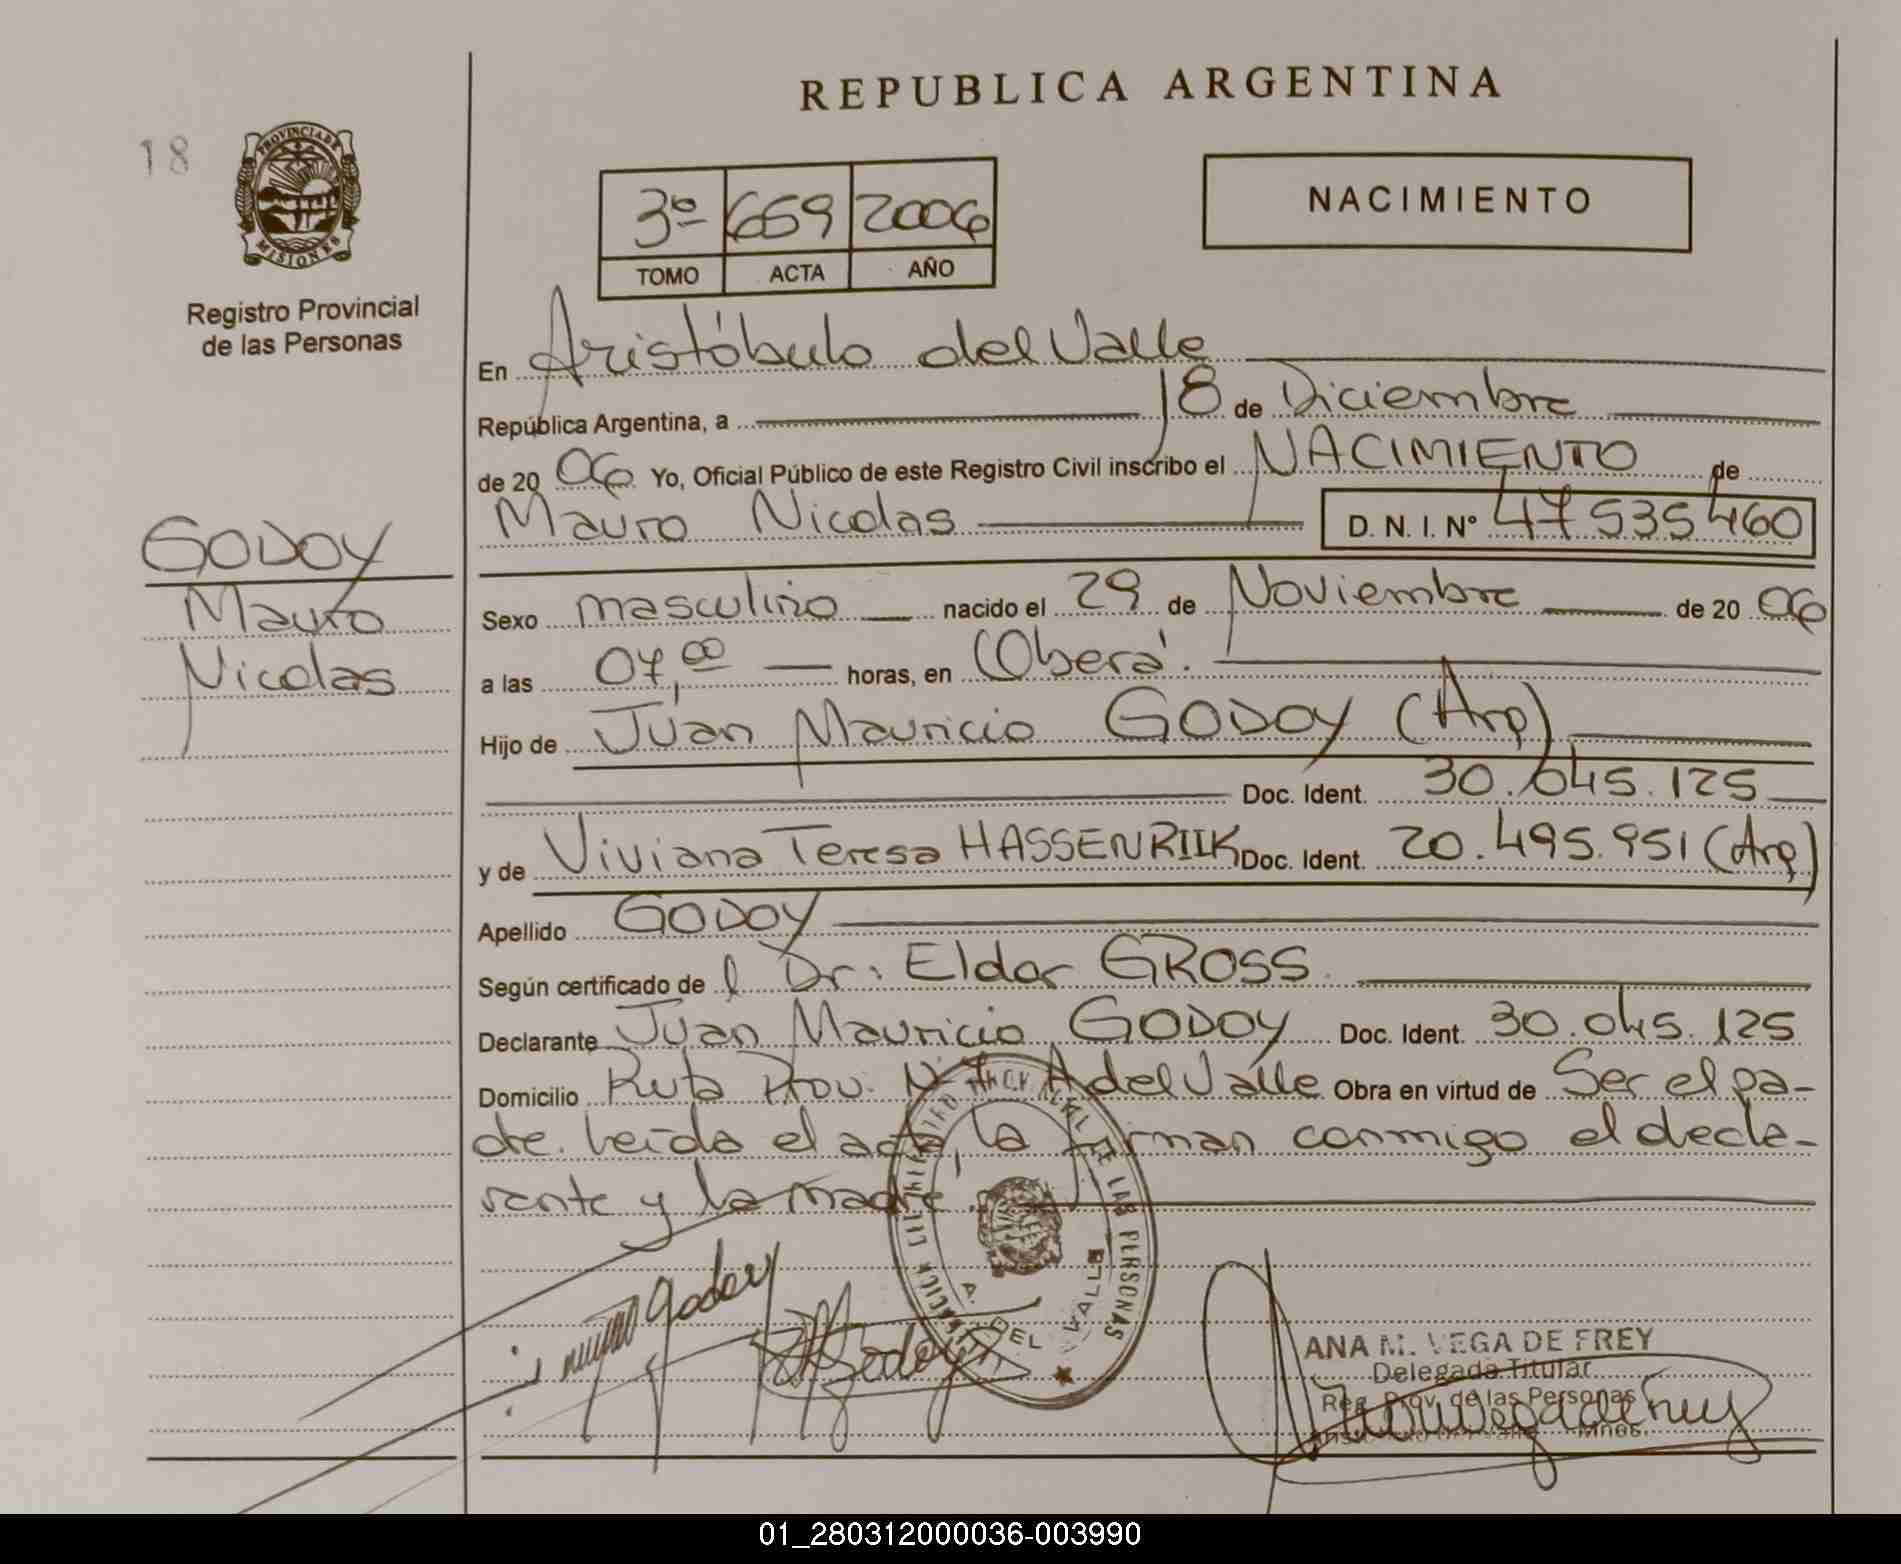 REPUBLICA ARGENTINA
18
PROVINCIA DE
MISIONES
Registro Provincial
de las Personas
3º 659 2006
TOMO ACTA AÑO
NACIMIENTO
En Aristóbulo del Valle
República Argentina, a 18 de Diciembre
de 2006 Yo, Oficial Público de este Registro Civil inscribo el NACIMIENTO de
Mauro Nicolas D. N. I. Nº 47535460
GODOY
Mauro
Nicolas
Sexo masculino nacido el 29 de Noviembre de 2006
a las 07,00 horas, en Oberá.
Hijo de Juan Mauricio GODOY (Arg)
Doc. Ident. 30.045.125
y de Viviana Teresa HASSENRIIK Doc. Ident. 20.495.951 (Arg)
Apellido GODOY
Según certificado del Dr. Eldor GROSS
Declarante Juan Mauricio GODOY Doc. Ident. 30.045.125
Domicilio Ruta Prov. Nº 7 A del Valle Obra en virtud de Ser el pa-
dre. Leída el acta, la firman conmigo el decla-
rante y la madre.
PROVINCIAL DE LAS PERSONAS
A. DEL VALLE
Godoy
Godoy
ANA M. VEGA DE FREY
Delegada Titular
Reg. Prov. de las Personas
Aristóbulo del Valle Mnes.
01_280312000036-003990